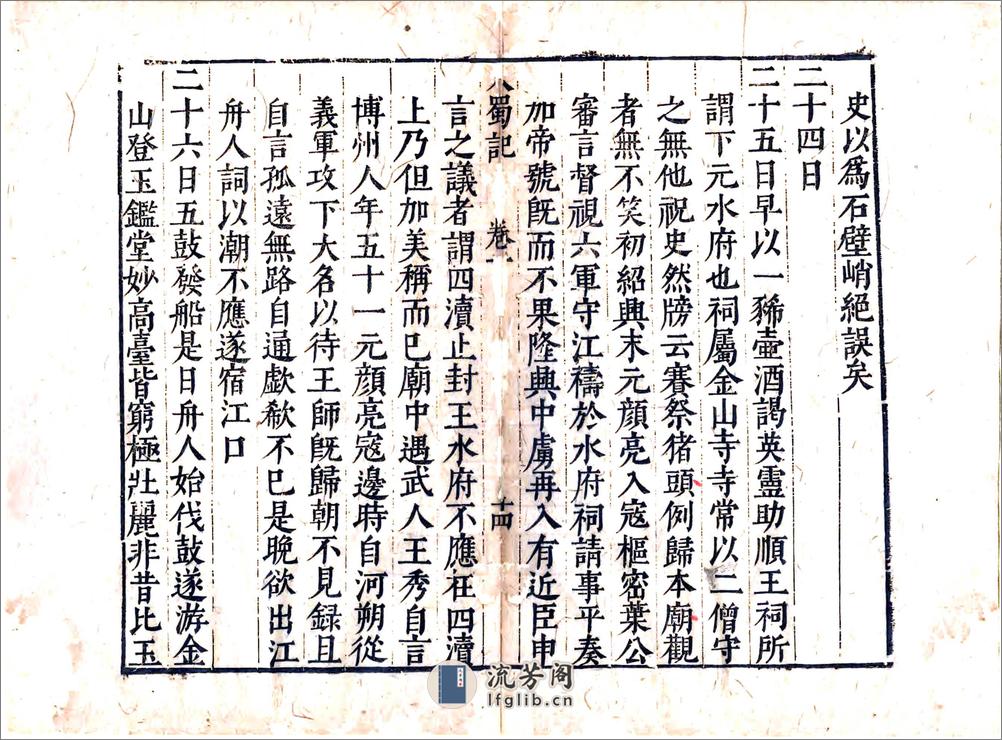 史以爲石壁峭絕誤矣
二十四日
二十五日早以一豨壺酒謁英靈助順王祠所
謂下元水府也祠屬金山寺寺常以二僧守
之無他祝史然牓云賽祭猪頭例歸本廟觀
者無不笑初紹興末元顏亮入寇樞密葉公
審言督視六軍守江禱於水府祠請事平奏
加帝號旣而不果隆興中虜再入有近臣申
入蜀記 卷一 十四
言之議者謂四瀆止封王水府不應在四瀆
上乃但加美稱而已廟中遇武人王秀自言
博州人年五十一元顏亮寇邊時自河朔從
義軍攻下大名以待王師旣歸朝不見録且
自言孤遠無路自通歔欷不已是晚欲出江
舟人詞以潮不應遂宿江口
二十六日五鼓發船是日舟人始伐鼓遂游金
山登玉鑑堂妙高臺皆窮極壯麗非昔比玉
流芳阁
lfglib.cn